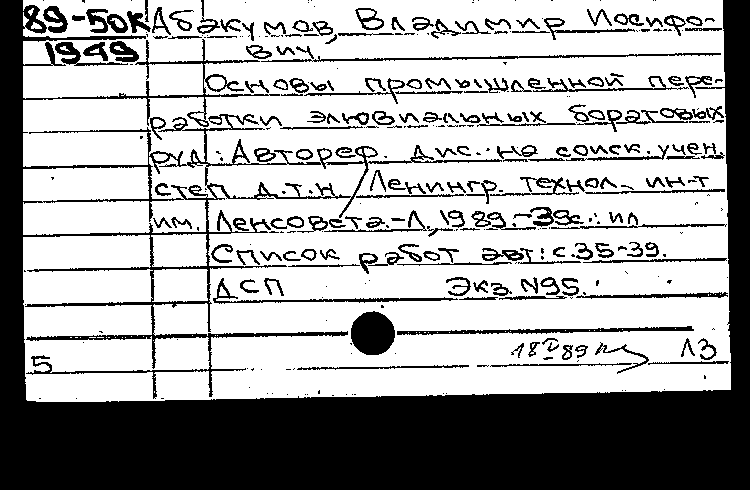 89-50к Абакумов, Владимир Иосифо-
1949 вич.
Основы промышленной пере-
работки элювиальных боратовых
руд: Автореф. дис. на соиск. учен.
степ. д.т.н. / Ленингр. технол. ин-т
им. Ленсовета.-Л., 1989.-39с.: ил.
Список работ авт: с.35-39.
ДСП Экз. N95.
5 18 V 89 13